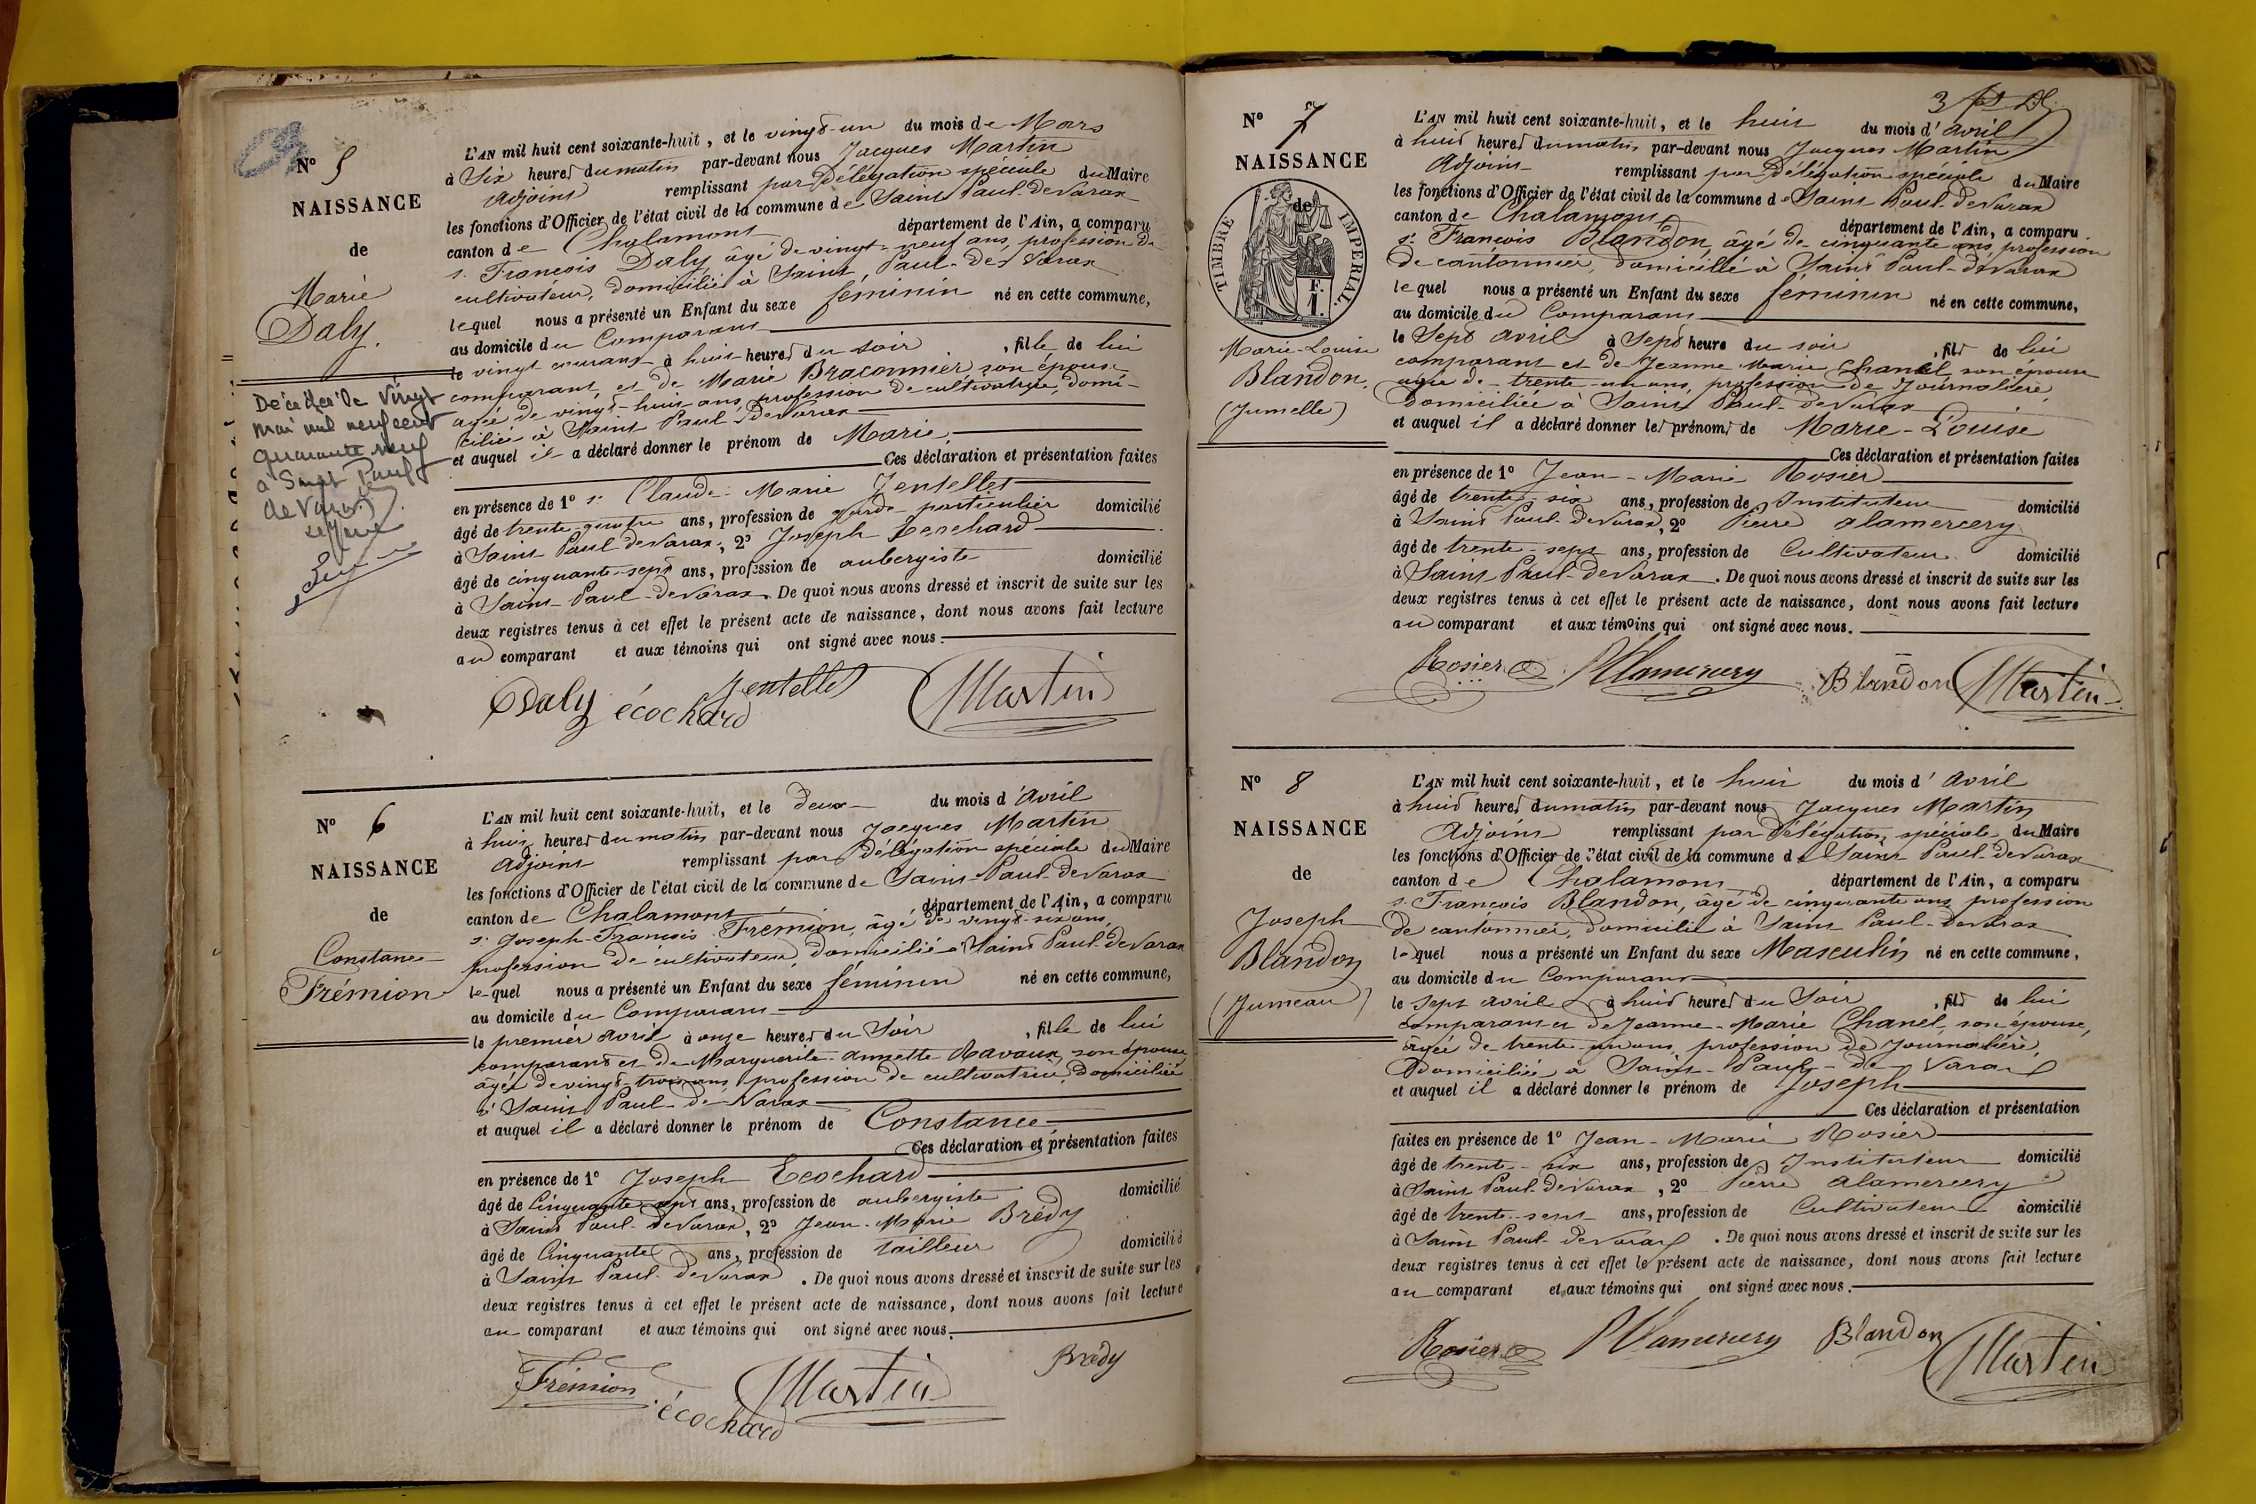 Nº 5
NAISSANCE
de
Marie
Daly.
Décédée le vingt
mai mil neuf cent
quarante neuf
à Saint Paul
de Varax
L'AN mil huit cent soixante-huit, et le vingt-un du mois de Mars
à Six heures du matin par-devant nous Jacques Martin
Adjoint remplissant par Délégation spéciale du Maire
les fonctions d'Officier de l'état civil de la commune de Saint Paul-de Varax
canton de Chalamont département de l'Ain, a comparu
s. François Daly, âgé de vingt-neuf ans, profession de
cultivateur, domicilié à Saint, Paul-de Varax
lequel nous a présenté un Enfant du sexe féminin né en cette commune,
au domicile du Comparant
le vingt courant à huit heures du soir, fille de lui
comparant, et de Marie Braconnier, son épouse
agée de vingt-huit ans, profession de cultivatrice, domi-
ciliée à Saint Paul-de Varax
et auquel il a déclaré donner le prénom de Marie,
Ces déclaration et présentation faites
en présence de 1º s. Claude-Marie Jentellet
âgé de trente-quatre ans, profession de garde-particulier domicilié
à Saint Paul de Varax, 2º Joseph Ecochard
âgé de cinquante-sept ans, profession de aubergiste domicilié
à Saint-Paul-de Varax. De quoi nous avons dressé et inscrit de suite sur les
deux registres tenus à cet effet le présent acte de naissance, dont nous avons fait lecture
au comparant et aux témoins qui ont signé avec nous.
Daly écochard Jentellet Martin
Nº 6
NAISSANCE
de
Constance
Frémion
L'AN mil huit cent soixante-huit, et le deux du mois d'avril
à huit heures du matin par-devant nous Jacques Martin
Adjoint remplissant par délégation spéciale du Maire
les fonctions d'Officier de l'état civil de la commune de Saint-Paul-de Varax
canton de Chalamont département de l'Ain, a comparu
s. Joseph-François Frémion, âgé de vingt-six ans,
profession de cultivateur, domicilié à Saint Paul-de Varax
lequel nous a présenté un Enfant du sexe féminin né en cette commune,
au domicile du Comparant
le premier avril à onze heures du Soir, fille de lui
comparant et de Marguerite-annette Ravaux, son épouse
âgée de vingt-trois ans, profession de cultivatrice, domiciliée
à Saint Paul-de-Varax
et auquel il a déclaré donner le prénom de Constance,
Ces déclaration et présentation faites
en présence de 1º Joseph Ecochard
âgé de Cinquante-sept ans, profession de aubergiste domicilié
à Saint Paul-de Varax, 2º Jean-Marie Brédy
âgé de Cinquante ans, profession de tailleur domicilié
à Saint Paul-de Varax. De quoi nous avons dressé et inscrit de suite sur les
deux registres tenus à cet effet le présent acte de naissance, dont nous avons fait lecture
au comparant et aux témoins qui ont signé avec nous.
Frémion écochard Martin Brédy
3
Nº 7
NAISSANCE
de
TIMBRE IMPERIAL.
F.
1.
Marie-Louise
Blandon,
(Jumelle)
L'AN mil huit cent soixante-huit, et le huit du mois d'avril
à huit heures du matin par-devant nous Jacques Martin
Adjoint remplissant par Délégation spéciale du Maire
les fonctions d'Officier de l'état civil de la commune de Saint Paul-de Varax
canton de Chalamont, département de l'Ain, a comparu
s. François Blandon, âgé de cinquante ans, profession
de cantonnier, domicilié à Saint Paul-de Varax
lequel nous a présenté un Enfant du sexe féminin né en cette commune,
au domicile du Comparant
le Sept avril à Sept heure du soir, fils de lui
comparant et de Jeanne Marie Chanel son épouse
agée de trente-un ans, profession de Journalière,
Domiciliée à Saint Paul-de Varax
et auquel il a déclaré donner les prénoms de Marie-Louise
Ces déclaration et présentation faites
en présence de 1º Jean-Marie Rosier
âgé de trente-six ans, profession de Instituteur domicilié
à Saint Paul-de Varax, 2º Pierre alamercery
âgé de trente-sept ans, profession de Cultivateur domicilié
à Saint Paul-de Varax. De quoi nous avons dressé et inscrit de suite sur les
deux registres tenus à cet effet le présent acte de naissance, dont nous avons fait lecture
au comparant et aux témoins qui ont signé avec nous.
Rosier Alamercery Blandon Martin
Nº 8
NAISSANCE
de
Joseph
Blandon
(Jumeau)
L'AN mil huit cent soixante-huit, et le huit du mois d'avril
à huit heures du matin par-devant nous Jacques Martin
Adjoint remplissant par Délégation spéciale du Maire
les fonctions d'Officier de l'état civil de la commune de Saint Paul-de Varax
canton de Chalamont département de l'Ain, a comparu
s. François Blandon, âgé de cinquante ans, profession
de cantonnier, domicilié à Saint Paul-de Varax
lequel nous a présenté un Enfant du sexe Masculin né en cette commune,
au domicile du Comparant
le sept avril à huit heures du Soir, fils de lui
comparant et de Jeanne-Marie Chanel, son épouse,
âgée de trente-un ans, profession de Journalière,
Domiciliée à Saint-Paul-de Varax
et auquel il a déclaré donner le prénom de Joseph
Ces déclaration et présentation
faites en présence de 1º Jean-Marie Rosier
âgé de trente-six ans, profession de Instituteur domicilié
à Saint Paul-de Varax, 2º Pierre alamercery
âgé de trente-sept ans, profession de Cultivateur domicilié
à Saint Paul-de Varax. De quoi nous avons dressé et inscrit de suite sur les
deux registres tenus à cet effet le présent acte de naissance, dont nous avons fait lecture
au comparant et aux témoins qui ont signé avec nous.
Rosier Alamercery Blandon Martin